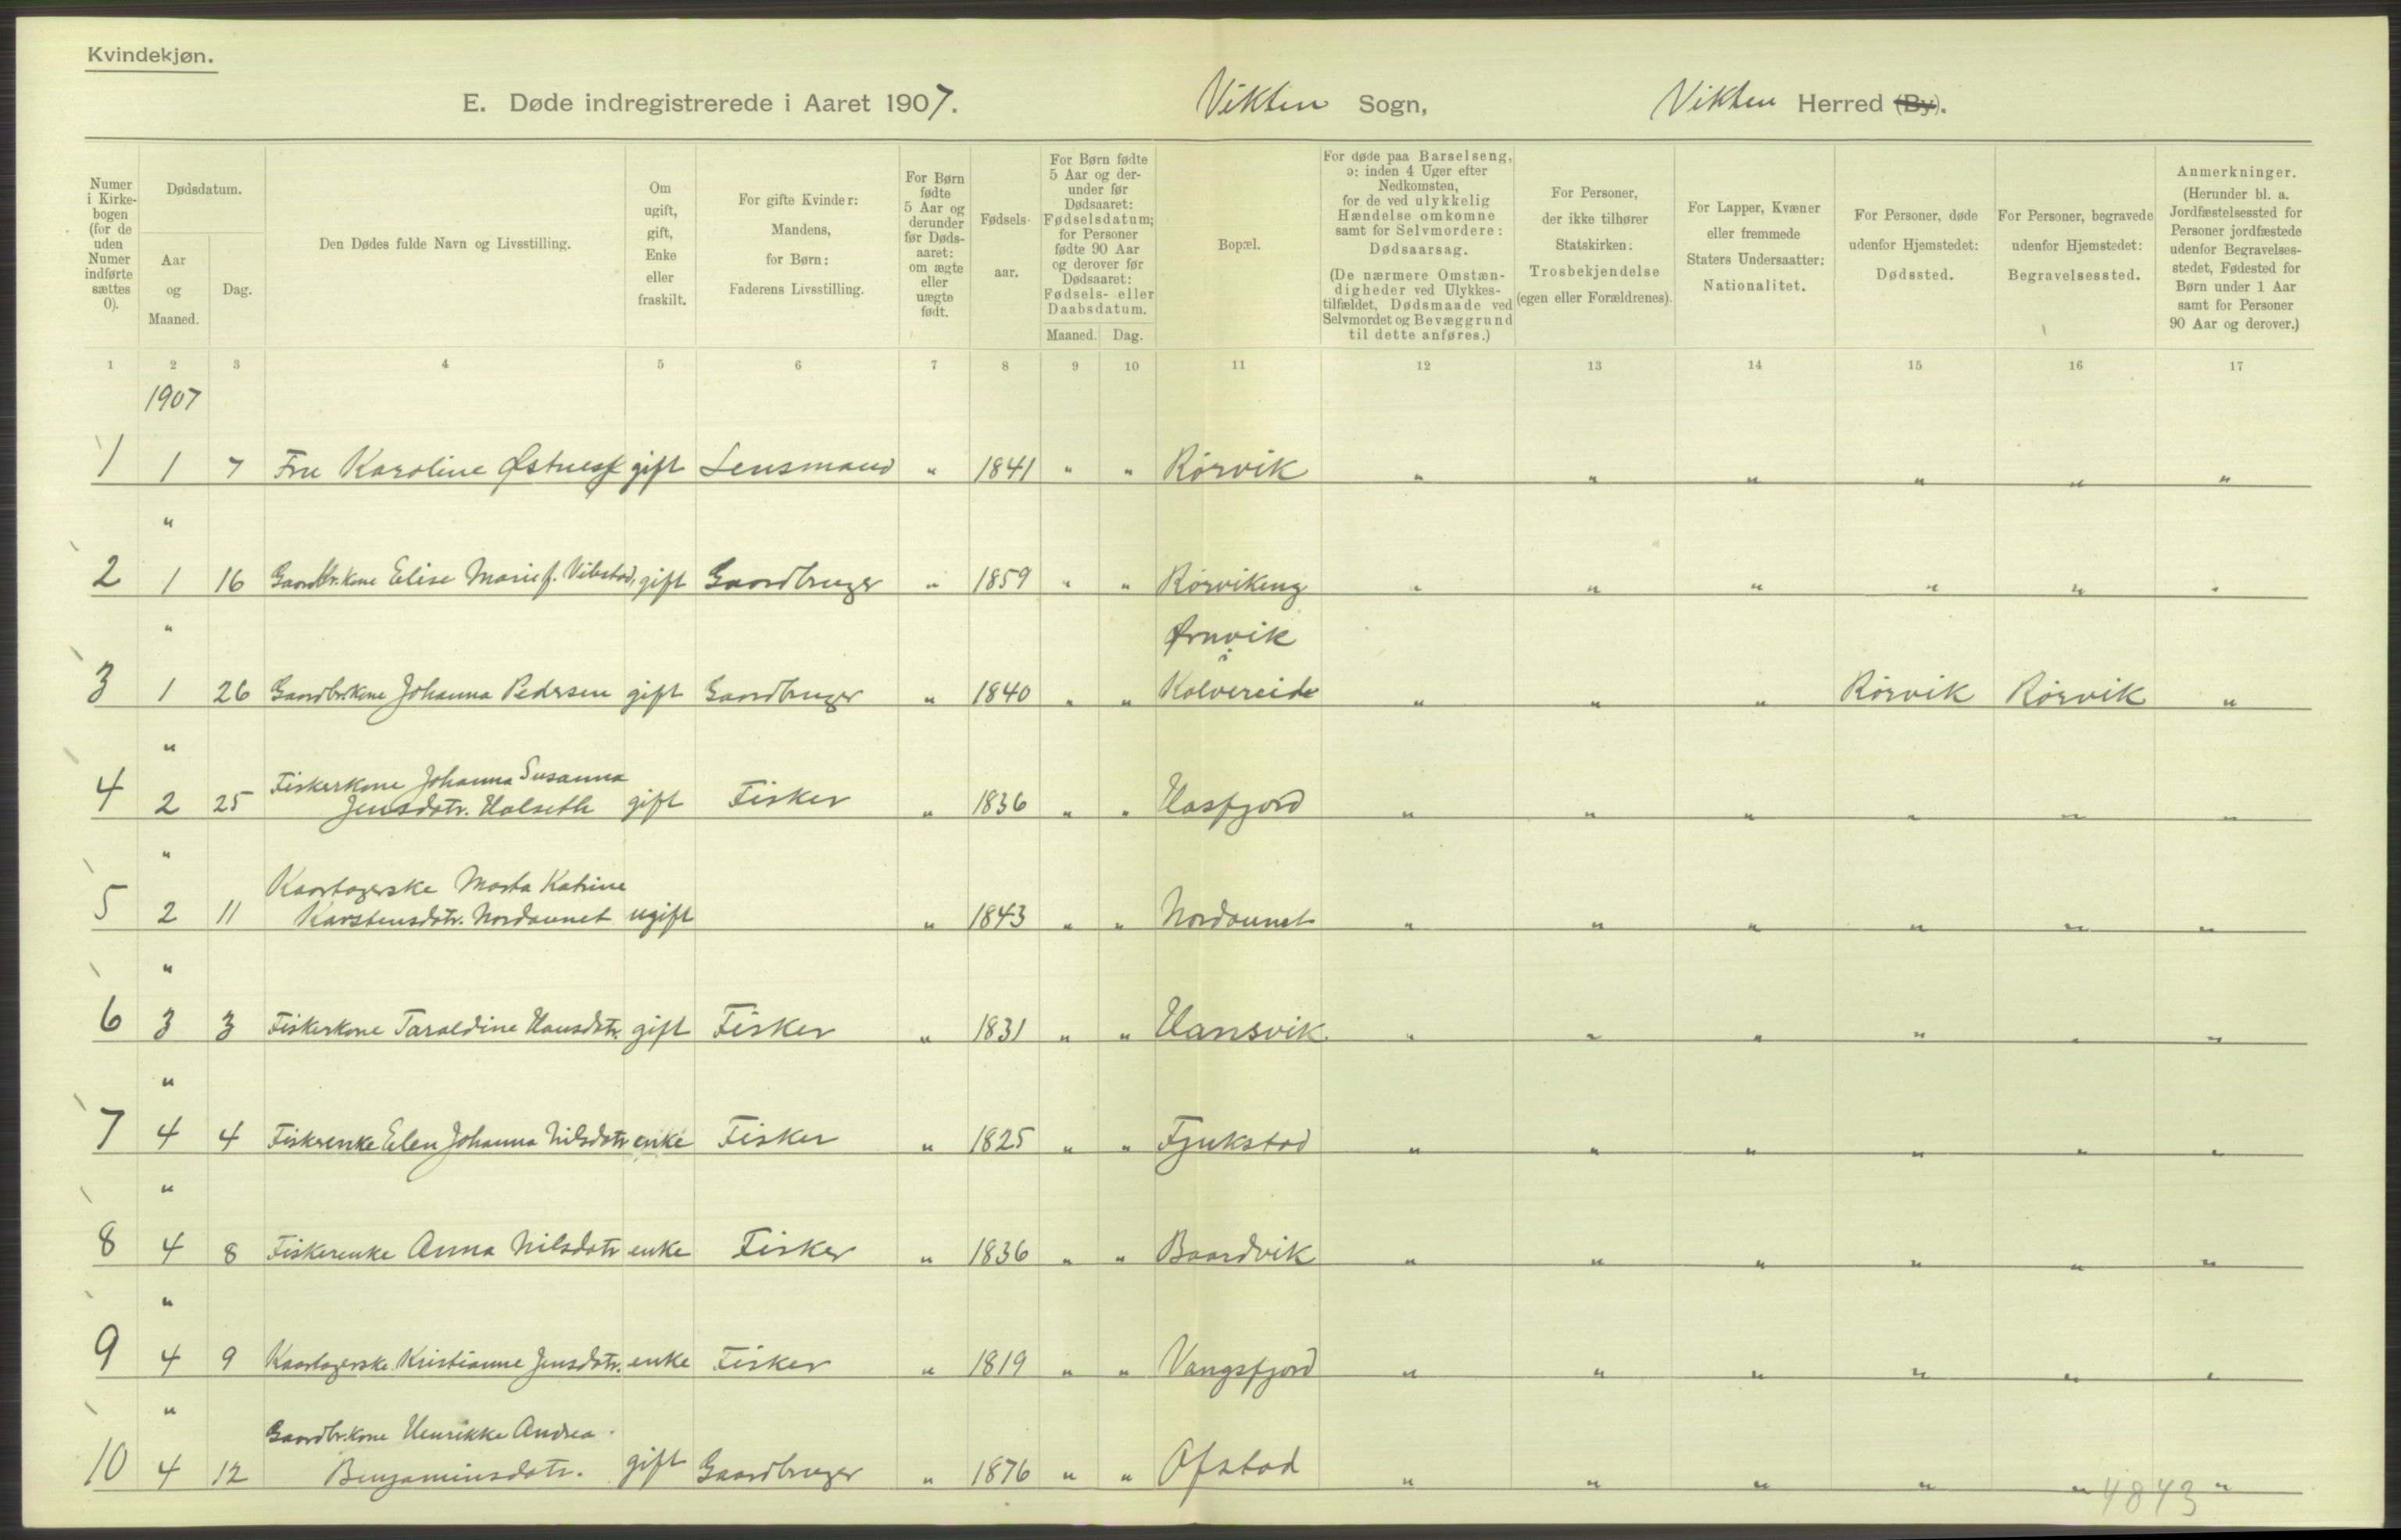 Kvindekjøn.
E. Døde indregistrerede i Aaret 1907. Vikten Sogn, Vikten Herred (By).
Numer i Kirkebogen (for de uden Numer indførte sættes 0).
Dødsdatum.
Aar og Maaned.
Dag.
Den Dødes fulde Navn og Livsstilling.
Om ugift, gift, Enke eller fraskilt.
For gifte Kvinder: Mandens, for Børn: Faderens Livsstilling.
For Børn fødte 5 Aar og derunder før Dødsaaret: om ægte eller uægte født.
Fødselsaar.
For Børn fødte 5 Aar og derunder før Dødsaaret: Fødselsdatum; for Personer fødte 90 Aar og derover før Dødsaaret: Fødsels- eller Daabsdatum.
Maaned. Dag.
Bopæl.
For døde paa Barselseng, ɔ: inden 4 Uger efter Nedkomsten, for de ved ulykkelig Hændelse omkomne samt for Selvmordere: Dødsaarsag.
(De nærmere Omstændigheder ved Ulykkestilfældet, Dødsmaade ved Selvmordet og Bevæggrund til dette anføres.)
For Personer, der ikke tilhører Statskirken: Trosbekjendelse (egen eller Forældrenes).
For Lapper, Kvæner eller fremmede Staters Undersaatter: Nationalitet.
For Personer, døde udenfor Hjemstedet: Dødssted.
For Personer, begravede udenfor Hjemstedet: Begravelsessted.
Anmerkninger.
(Herunder bl. a. Jordfæstelsessted for Personer jordfæstede udenfor Begravelsesstedet, Fødested for Børn under 1 Aar samt for Personer 90 Aar og derover.)
1 2 3 4 5 6 7 8 9 10 11 12 13 14 15 16 17
1907
1 1 7 Fru Karoline gift Lensmand " 1841 " " Rörvik " " " " " "
"
2 1 16 Gaardbr.kone Elise Marie f. Vibstad, gift Gaardbruger " 1859 " " Rörvikeng " " " " " "
" Ørnvik
i
3 1 26 Gaardbr.kone Johanna Pedersen gift Gaardbruger " 1840 " " Kolvereide " " " Rörvik Rörvik "
"
Fiskerkone Johanna Susanna
4 2 25 Jensdatr. Halseth gift Fisker " 1836 " " Hasfjord " " " " " "
"
Kaartagerske Marta Katrine
5 2 11 Karstensdatr. Nordaunet ugift " 1843 " " Nordaunet " " " " " "
"
6 3 3 Fiskerkone Taraldine Hansdatr. gift Fisker " 1831 " " Hansvik " " " " " "
"
7 4 4 Fiskerenke Elen Johanna Nilsdatr enke Fisker " 1825 " " Fjukstad " " " " " "
"
8 4 8 Fiskerenke Anna Nilsdatr enke Fisker " 1836 " " Baardvik " " " " " "
"
9 4 9 Kaartagerske Kristianne Jensdatr. enke Fisker " 1819 " " Vangsfjord " " " " " "
"
Gaardbr.kone Henrikke Andrea
10 4 12 Benjaminsdatr. gift Gaardbruger " 1876 " " Ofstad " " " " " "
4843